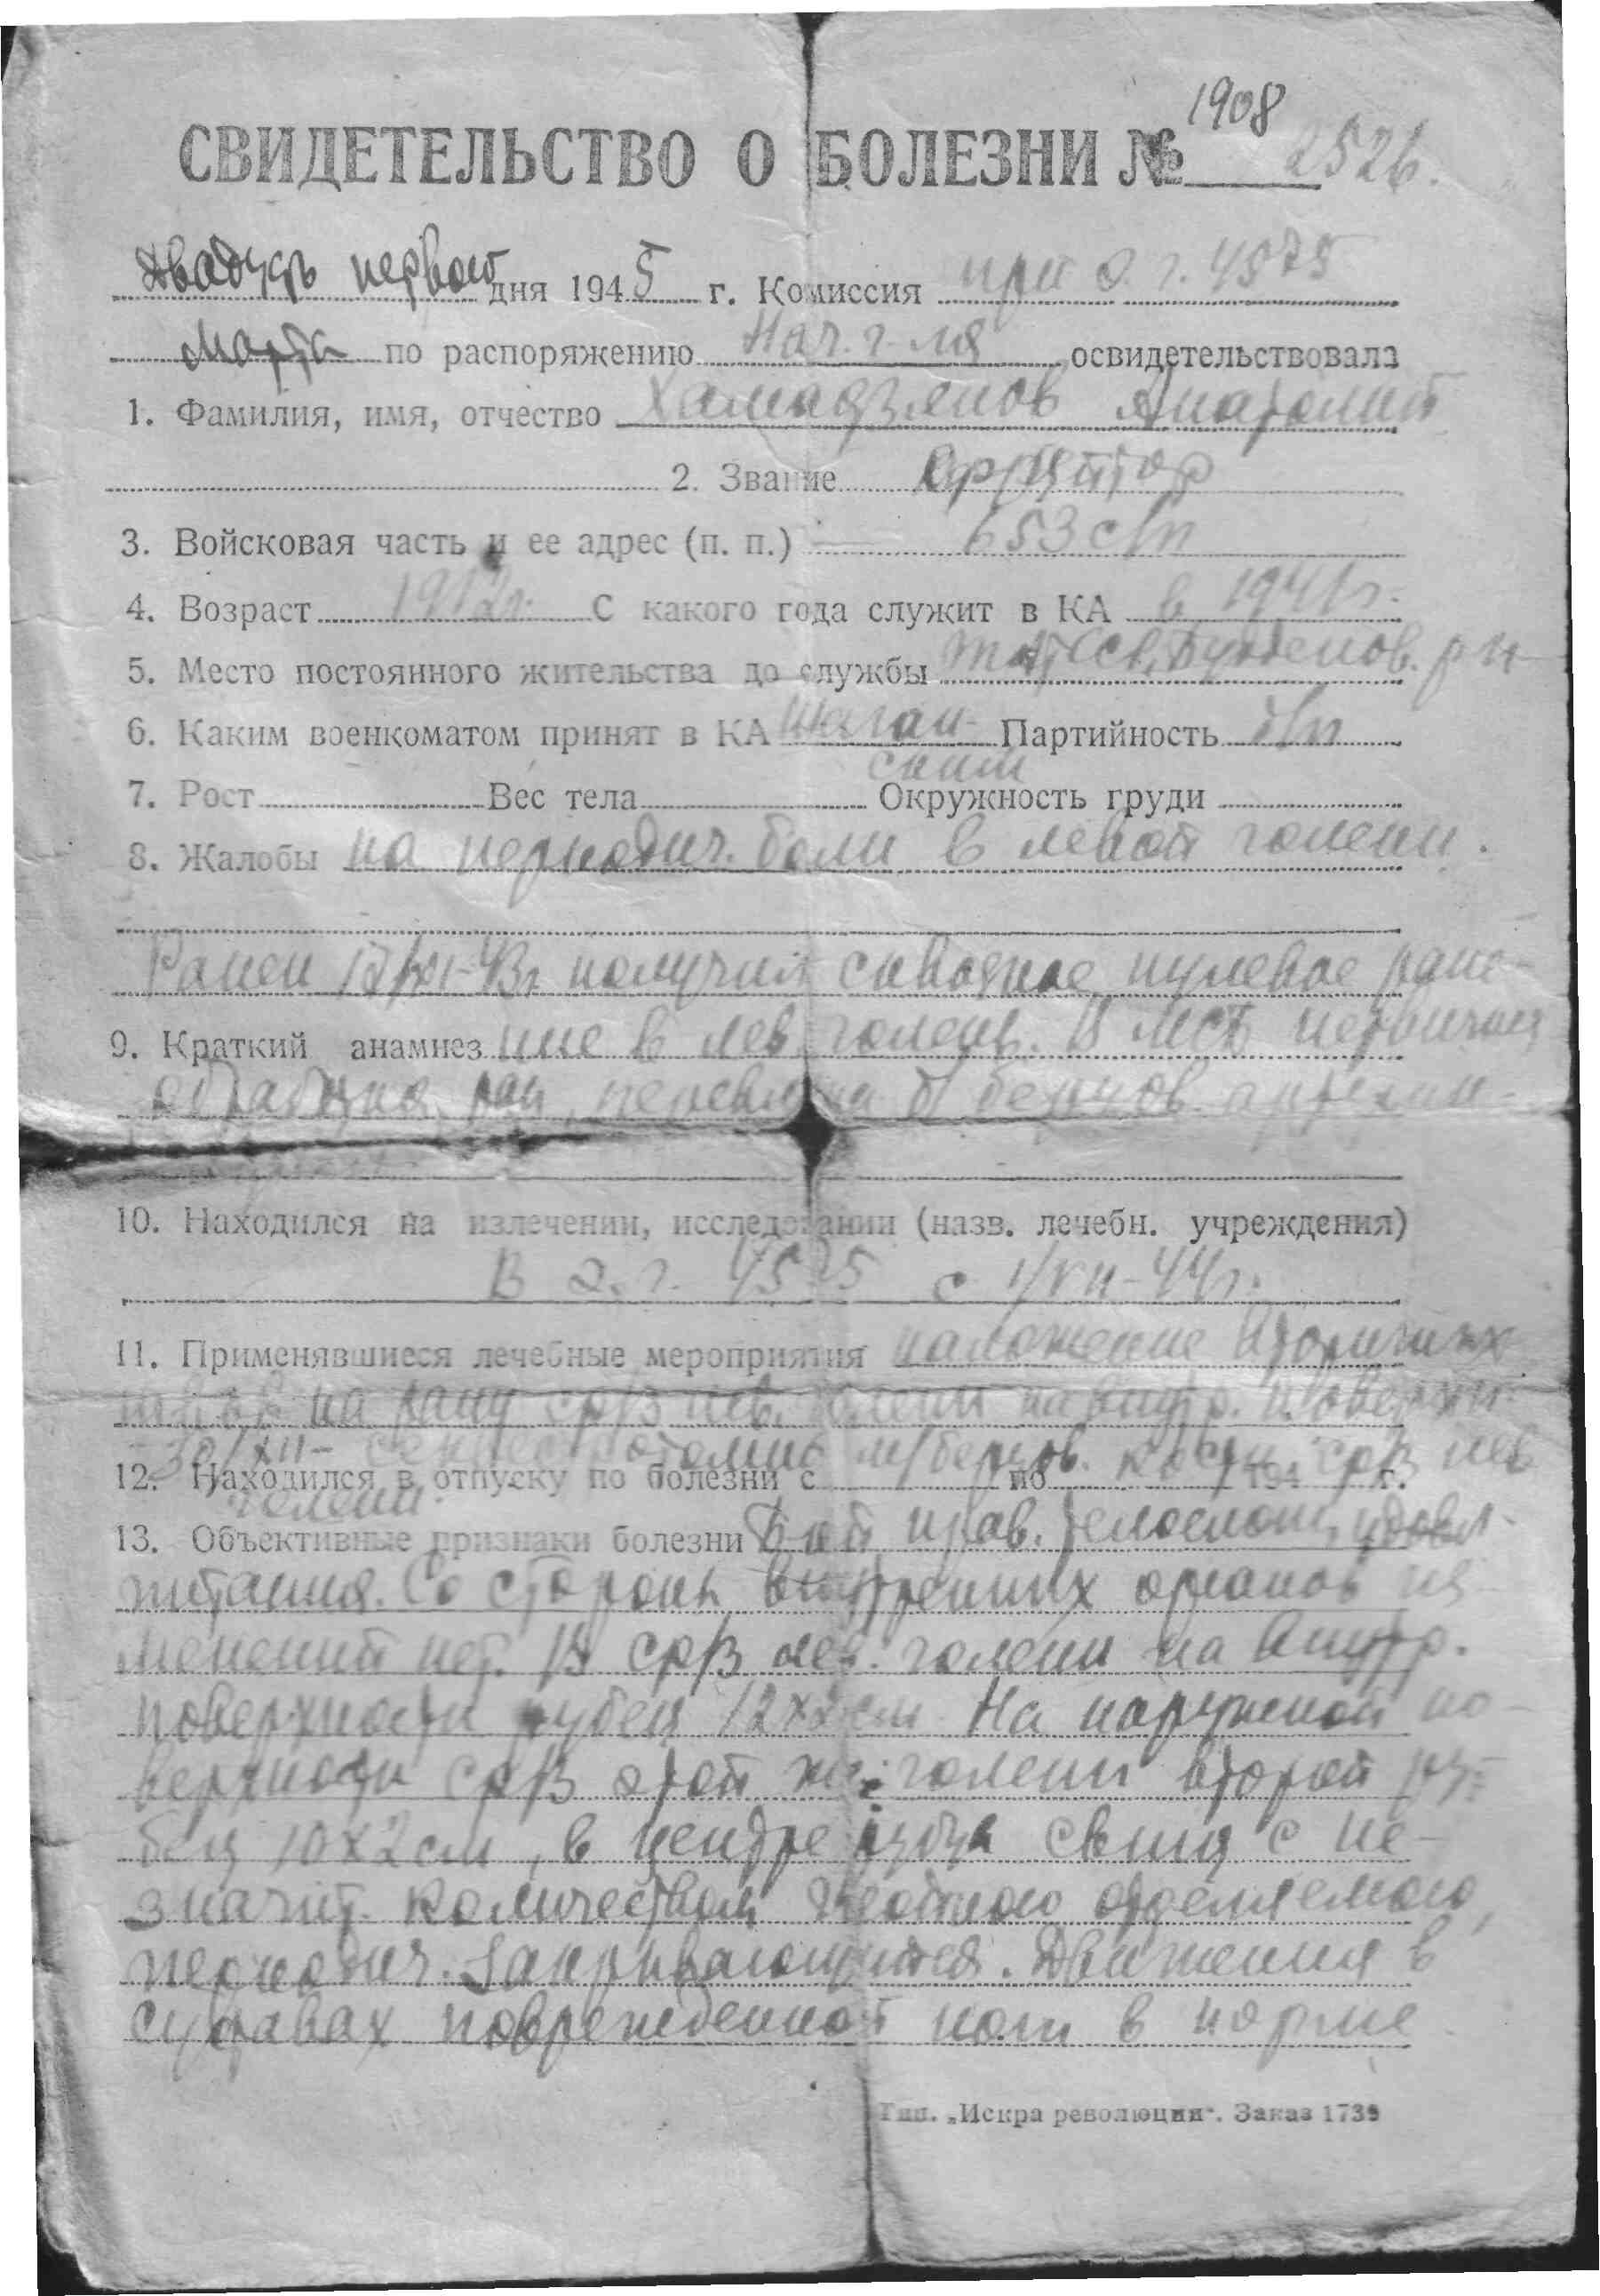 1908
СВИДЕТЕЛЬСТВО О БОЛЕЗНИ № 2526.
Двадцать первого дня 1945 г. Комиссия при э. г. 4575
Марта по распоряжению Нач. г-ля освидетельствовала
1. Фамилия, имя, отчество Хамадзянов Анатолий
2. Звание Ефрейтор
3. Войсковая часть и ее адрес (п. п.) — 653 с/п
4. Возраст 1912г. С какого года служит в КА в 1941г.
5. Место постоянного жительства до службы р-н
6. Каким военкоматом принят в КА Партийность б/п
7. Рост Вес тела Окружность груди
8. Жалобы на периодич. боли в левой голени.
Ранен получил сквозное пулевое ране-
9. Краткий анамнез ние в лев. голень. В МСБ первичная
обработка ран, б/берцов. артерии
10. Находился на излечении, исследовании (назв. лечебн. учреждения)
В э. г. 4575 с 1/VII-44г.
11. Применявшиеся лечебные мероприятия наложение вторичных
швов на рану ср/3 лев. голени на внутр. поверхн.
30/XII- секвестротомия м/берцов. кости ср/3 лев
12. Находился в отпуску по болезни с по 194 г.
голени.
13. Объективные признаки болезни Б-ой прав. телослож, удовл.
питания. Со стороны внутренних органов из-
менений нет. В ср/3 лев. голени на внутр.
поверхности рубец 12х2см. На наружной по-
верхности ср/3 этой же голени второй ру-
бец 10х2см, в центре рубца свищ с не-
значит. количеством гнойного отделяемого,
периодич. закрывающийся. Движения в
суставах поврежденной ноги в норме
Тип. „Искра революции“. Заказ 1739